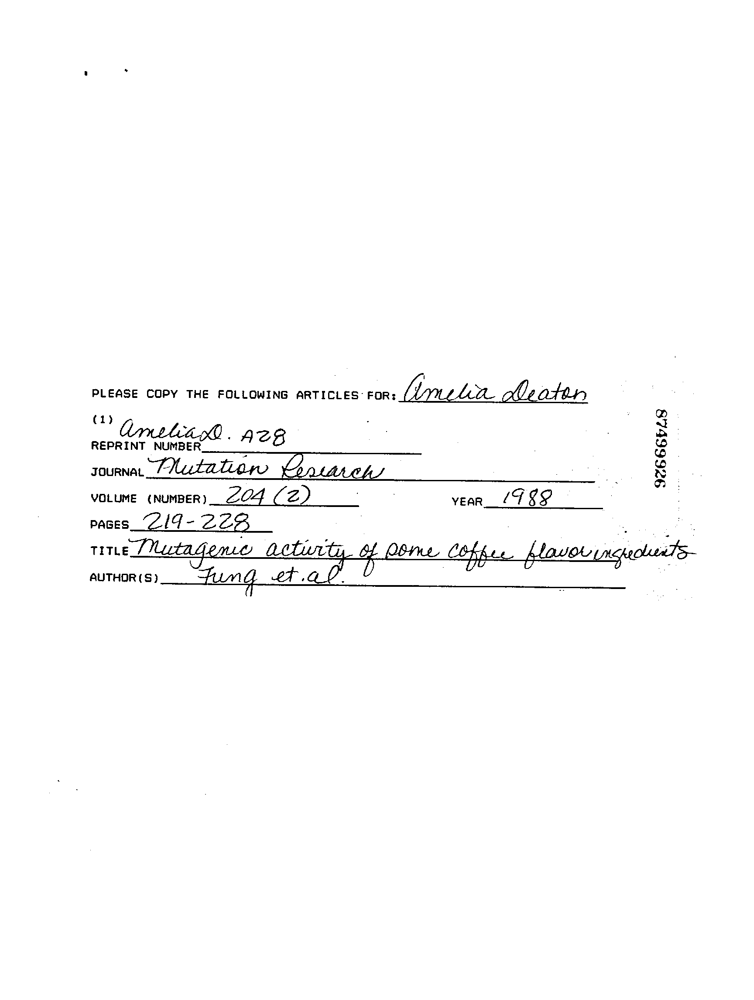 PLEASE COPY THE FOLLOWING ARTICLES FOR: Amelia Deaton
(1) Amelia D. A28
REPRINT NUMBER
JOURNAL Mutation Research
VOLUME (NUMBER) 204 (2) YEAR 1988
PAGES 219-228
TITLE Mutagenic activity of some coffee flavor ingredients
AUTHOR(S) Fung et.al.
87499926